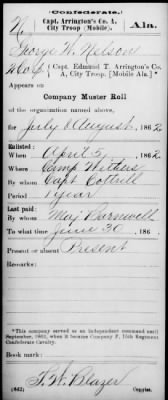 (Confederate.)
N Capt. Arrington's Co. A, Ala.
City Troop (Mobile).
George W. Nelson
Capt. Edmund T. Arrington's Co. A,
City Troop. [Mobile Ala.]
Appears on
Company Muster Roll
of the organization named above,
for July & August, 1862
Enlisted:
When April 5, 1862
Where Camp Withers
By whom Capt Cottrill
Period 1 year
Last paid:
By whom Maj Barnwell
To what time June 30, 186
Present or absent Present
Remarks:
*This company served as an independent command until
September, 1863, when it became Company F, 15th Regiment
Confederate Cavalry.
Book mark:
T. W. Blazer
(642) Copyist.